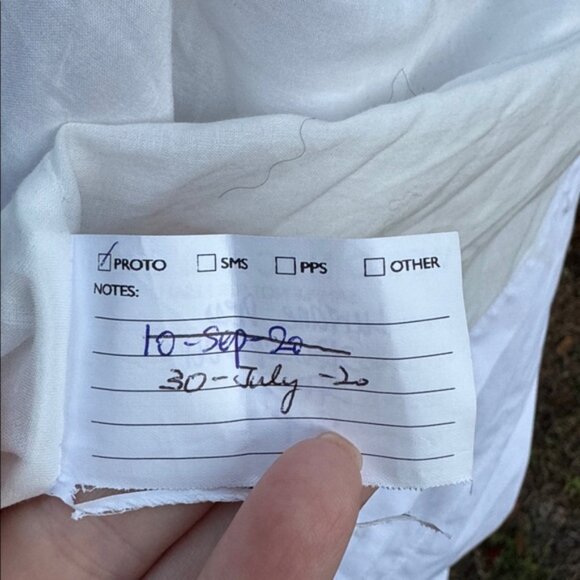 ☑ PROTO ☐ SMS ☐ PPS ☐ OTHER
NOTES:
10-Sep-20
30-July-20